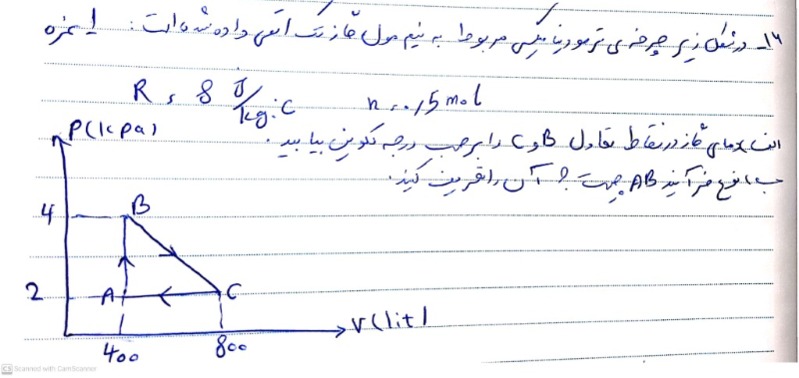 ۱۶- در شکل زیر چرخه ی ترمودینامیکی مربوط به نیم مول گاز تک اتمی داده شده است: ۱ نمره
R = 8 J/kg.c n = 0/5 mol
الف) دمای گاز در نقاط تعادل B و C را برحسب درجه کلوین بیابید.
ب) نوع فرآیند AB چیست؟ آن را تعریف کنید.
P(kpa)
B
4
2
A
C
V(lit)
400
800
CS Scanned with CamScanner